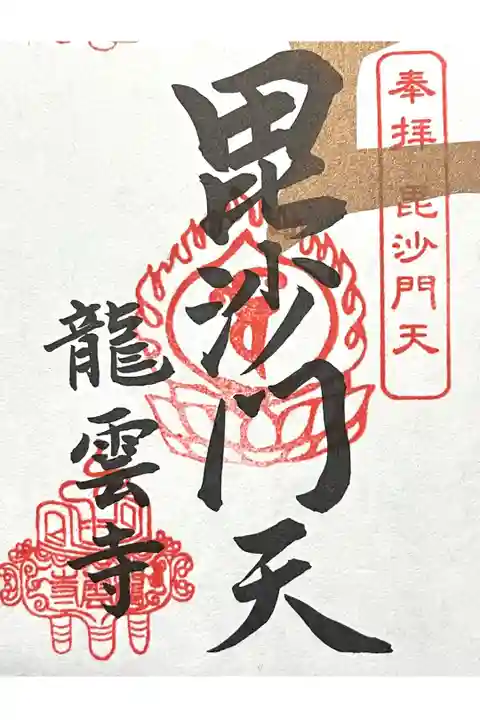 奉拝 毘沙門天
毘沙門天
龍雲寺